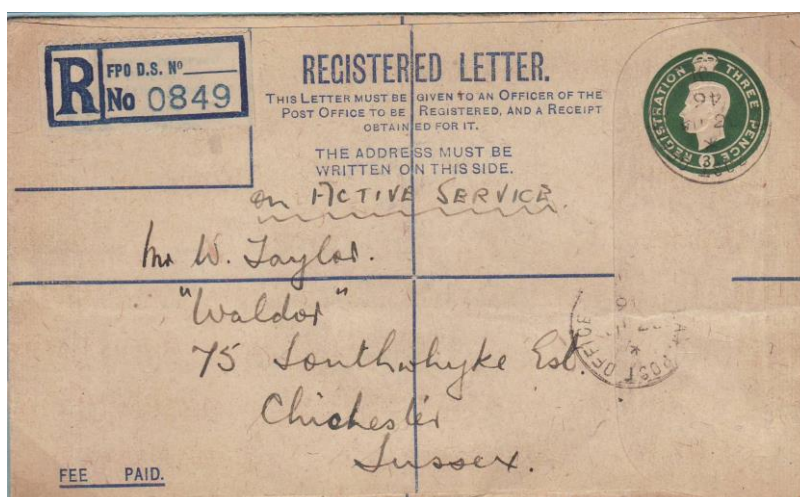 R FPO D.S. Nº
No 0849
REGISTERED LETTER.
THIS LETTER MUST BE GIVEN TO AN OFFICER OF THE
POST OFFICE TO BE REGISTERED, AND A RECEIPT
OBTAINED FOR IT.
THE ADDRESS MUST BE
WRITTEN ON THIS SIDE.
REGISTRATION THREE PENCE (3)
46
2
on ACTIVE SERVICE.
Mr W. Taylor.
"Waldor"
75 Southwhyke Est.
Chichester
Sussex.
POST OFFICE
FEE PAID.